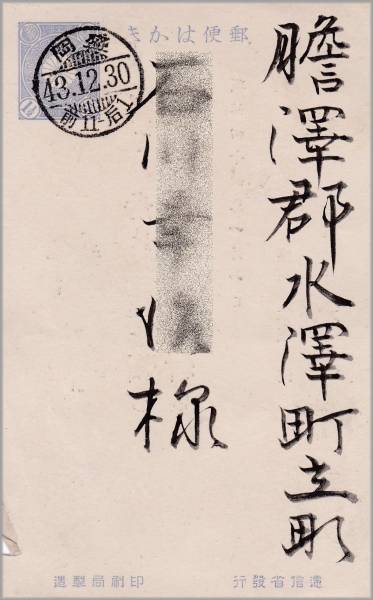 郵便はかき
盛岡
43.12.30
前11-后1
膽澤郡水澤町立町
様
遞信省發行
印刷局製造